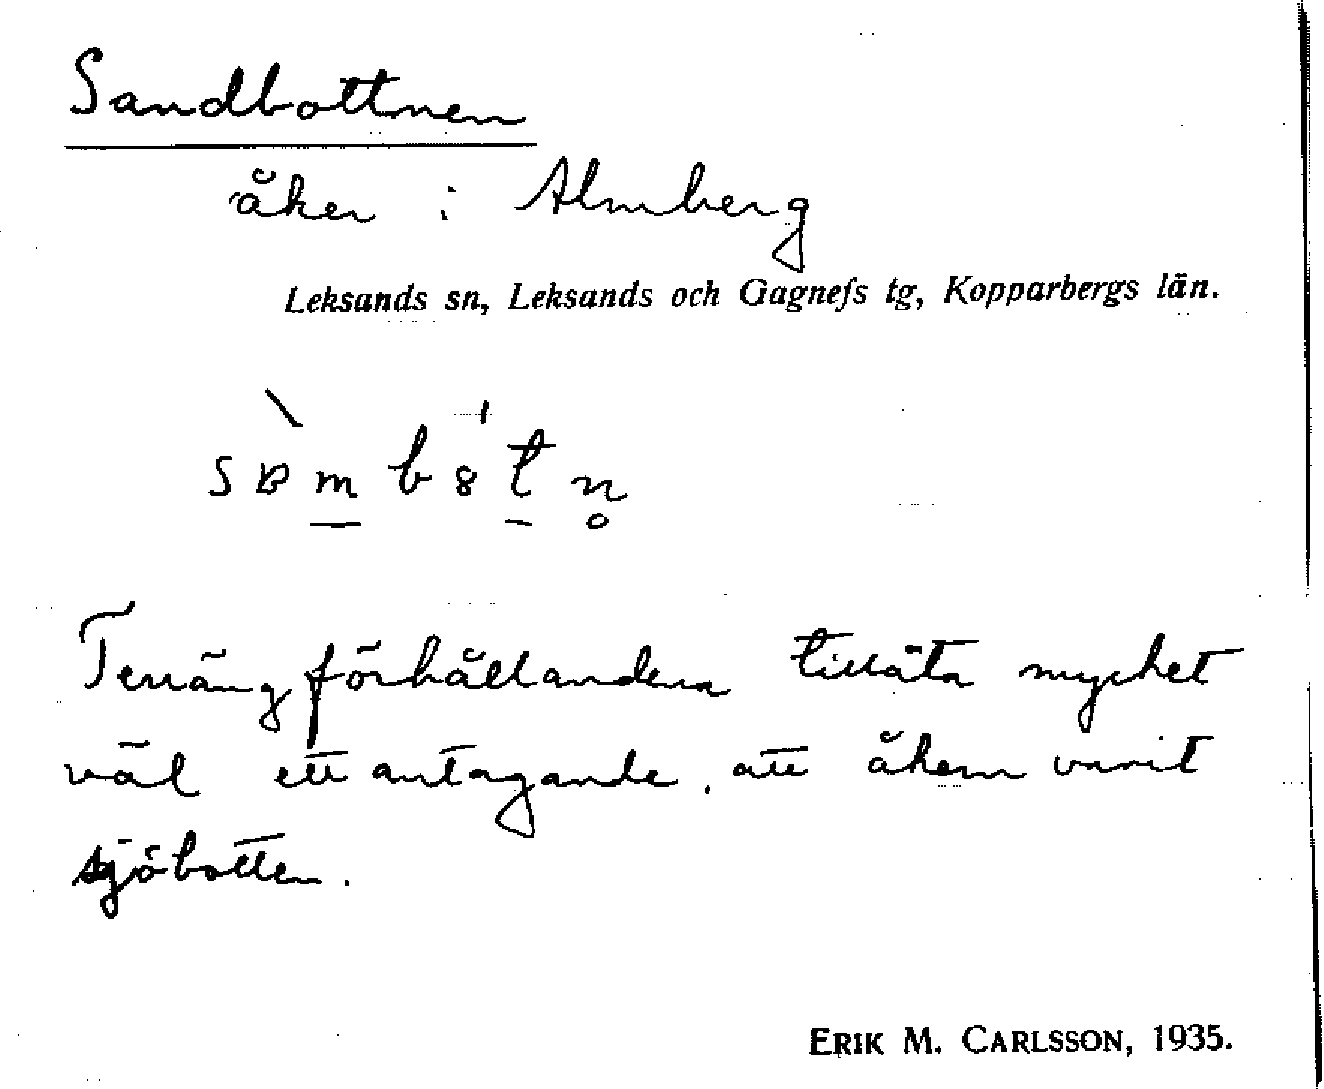 Sandbottnen
åker i Almberg
Leksands sn, Leksands och Gagnefs tg, Kopparbergs län.
sɒ̀m̲b8̍t̲n̥
Terrängförhållandena tillåta mycket
väl ett antagande, att åkern varit
sjöbotten.
ERIK M. CARLSSON, 1935.